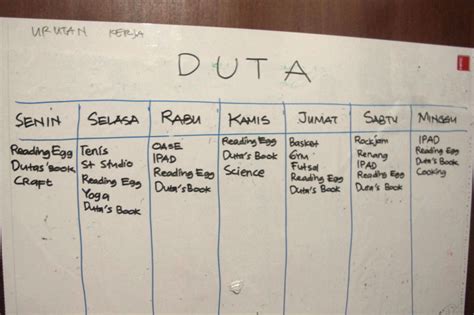 URUTAN KERJA
DUTA
SENIN SELASA RABU KAMIS JUMAT SABTU MINGGU
Reading Egg
Dutas Book
CRAPT
Tenis
St Studio
Reading Egg
Yoga
Duta's Book
OASE
IPAD
Reading Egg
Duta's Book
Reading Egg
Duta's Book
Science
Basket
Futsal
Reading Egg
Duta's Book
Rockjam
Renang
IPAD
Reading Egg
Duta's Book
IPAD
Reading Egg
Duta's Book
Cooking